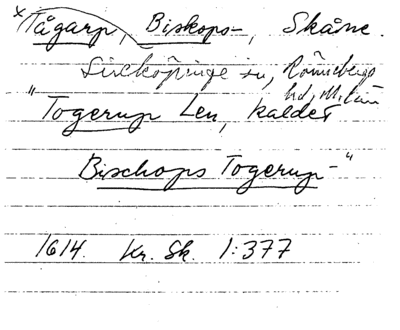 x Tågarp, Biskops-, Skåne.
Sireköpinge sn, Rönnebergs
hd, M. län
"Togerup Len, kaldet
Bischops Togerup-"
1614. Kr. Sk. 1:377